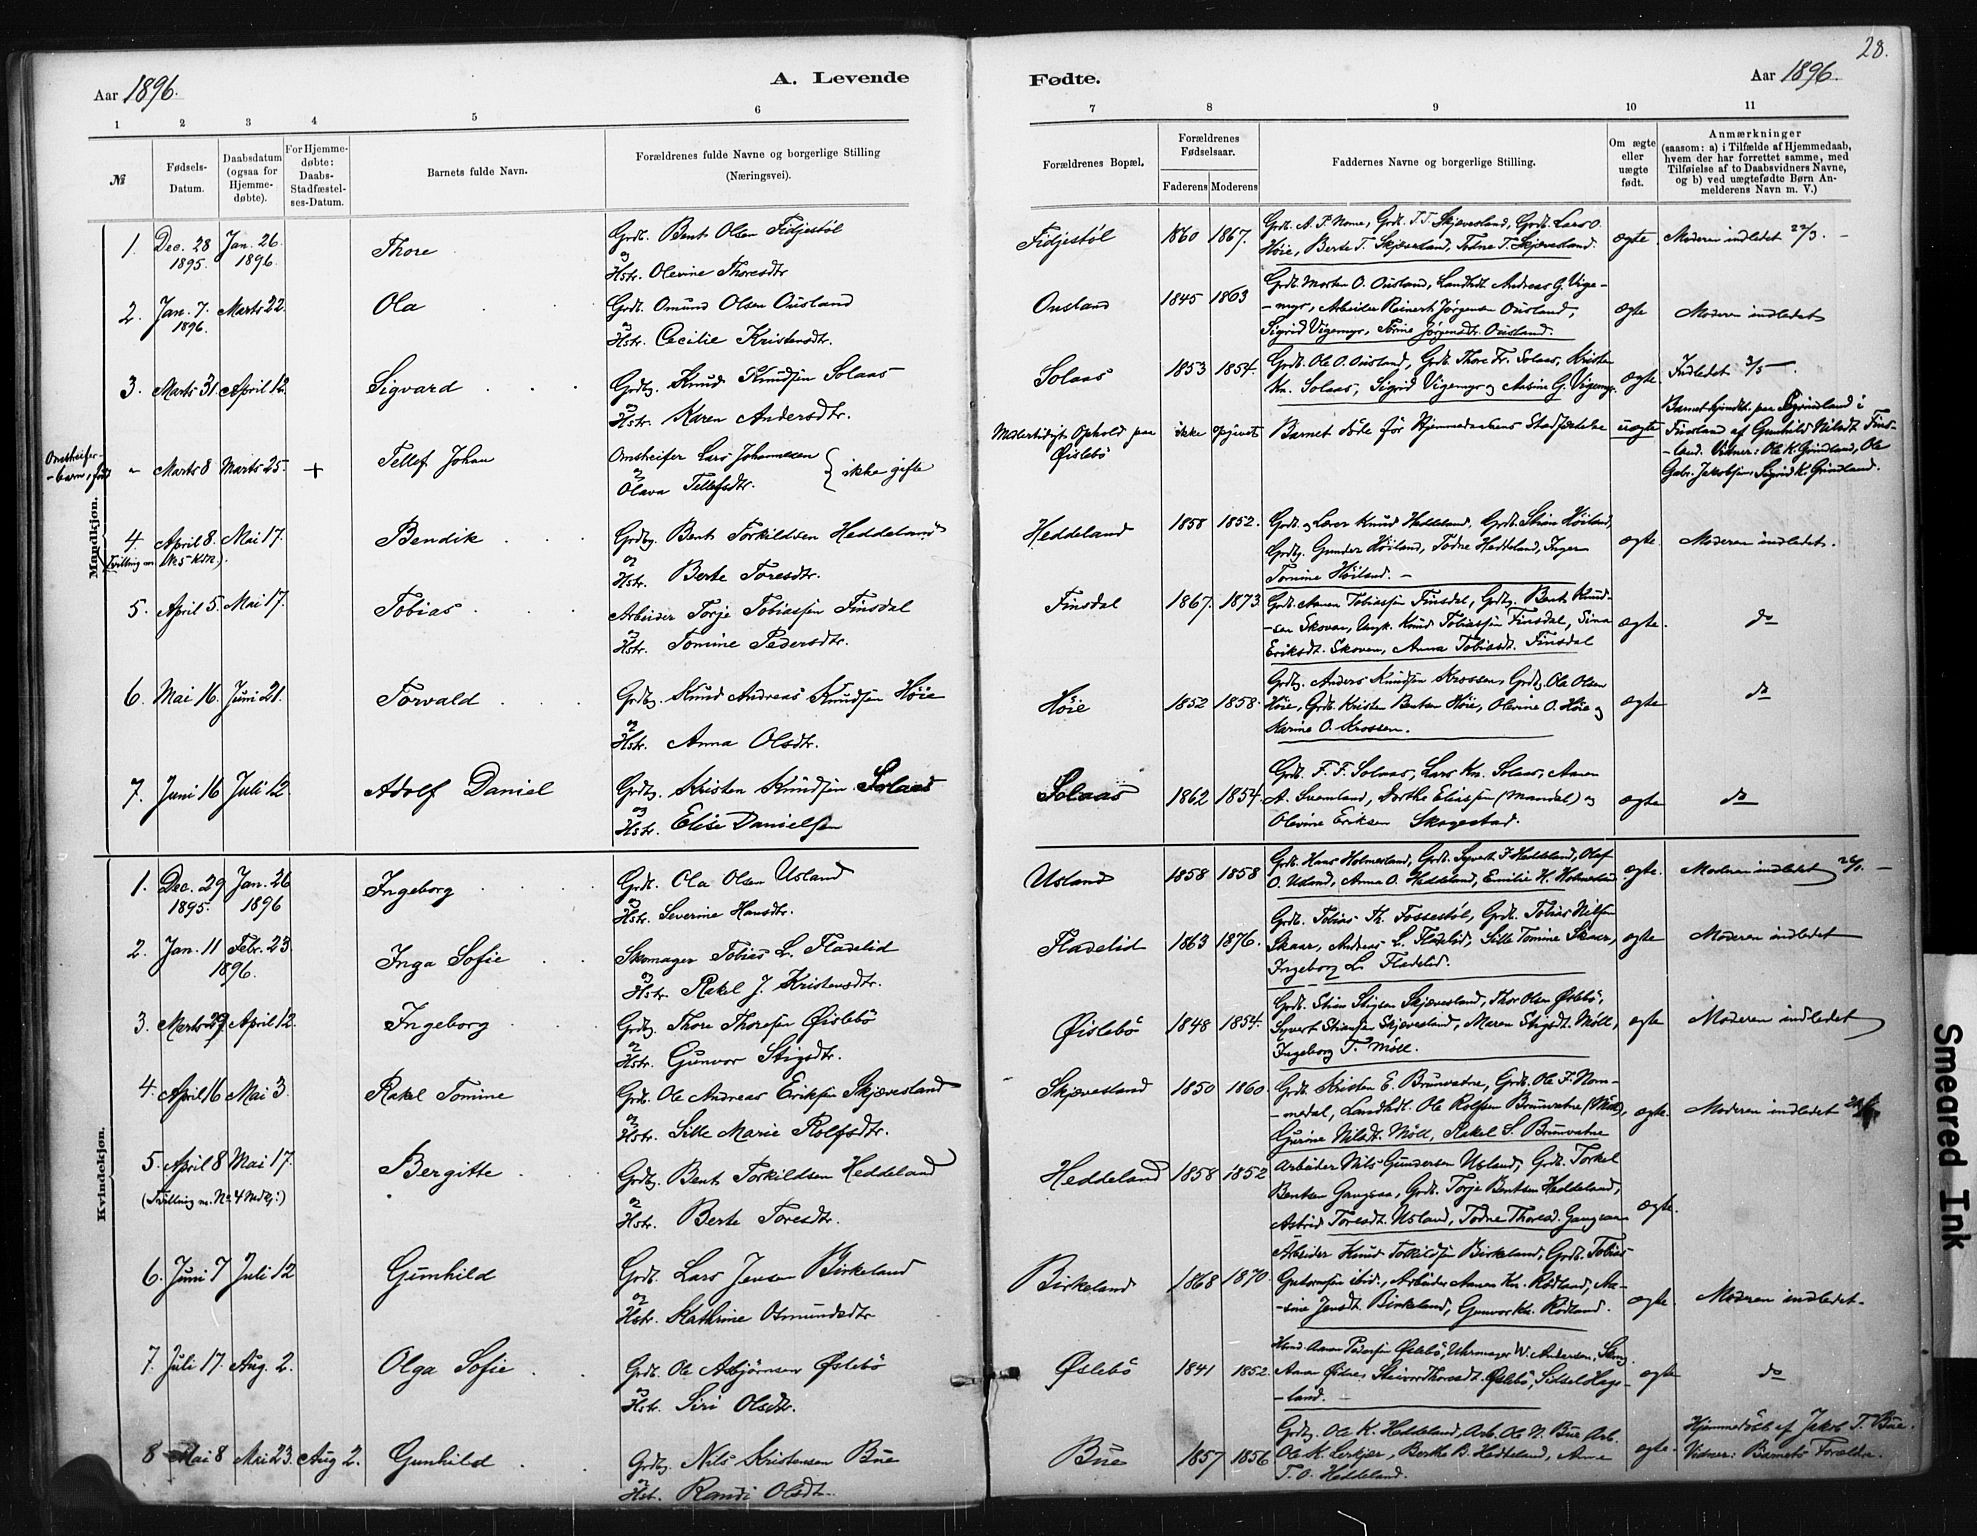 28.
Aar 1896.
A. Levende
Fødte.
Aar 1896.
1 2 3 4 5 6 7 8 9 10 11
№
Fødsels-Datum.
Daabsdatum (ogsaa for Hjemmedøbte).
For Hjemmedøbte: Daabs-Stadfæstelses-Datum.
Barnets fulde Navn.
Forældrenes fulde Navne og borgerlige Stilling (Næringsvei).
Forældrenes Bopæl.
Forældrenes Fødselsaar.
Faderens Moderens
Faddernes Navne og borgerlige Stilling.
Om ægte eller uægte født.
Anmærkninger (saasom: a) i Tilfælde af Hjemmedaab, hvem der har forrettet samme, med Tilføielse af to Daabsvidners Navne, og b) ved uægtefødte Børn Anmelderens Navn m. V.)
Mandkjøn.
1. Dec. 28 1895. Jan. 26. 1896. Thore
Grdb. Bent Olsen Fidjestøl
og
Hstr. Olevine Thoresdtr
Fidjestøl 1860 1867.
Grdb. A. P. Nome, Grdb. T. T. Skjævesland, Grdb. Lars O.
Høie, Berte T. Skjævesland, Todne T. Skjævesland.
ægte Moderen indledet 22/3.
2. Jan. 7. 1896. Marts 22. Ola
Grdb. Omund Olsen Ousland
og
Hstr. Cecilie Kristensdtr.
Ousland 1845 1863
Grdb. Morten O. Ousland, Landhdl. Andreas G. Vige-
-myr, Arbeider Reinert Jørgensen Ousland,
Sigrid Vigemyr, Jørgensdtr. Ousland.
ægte Moderen indledet
3. Marts 31. April 12. Sigvard
Grdbg. Knud Knudsen Solaas
og
Hstr. Karen Andersdtr.
Solaas 1853 1854.
Grdb. Ole O. Ousland, Grdb. Thore Fr. Solaas, Kristen
Kn. Solaas, Sigrid Vigemyr og Aasine G. Vigemyr.
ægte Indledet 3/5
Omstreifer-
-barn, født
" Marts 8 Marts 25. + Tellef Johan
Omstreifer Lars Johannesen
og
Olava Tellefsdtr. } ikke gifte
Midlertidigt Ophold paa
Øislebö
ikke opgivet Barnet døde før Hjemmedaabens Stadfæstelse
uægte
Barnet hjemdbt. paa Grindland i
Finsland af Gunhild Nilsdt. Fins-
-land. Vidner: Ole K. Grindland, Ole
Gabr. Jakobsen, Sigrid K. Grindland.
4. April 8. Mai 17. Bendik
(Tvilling m. No 5 Kdkn.)
Grdbg. Bent Torkildsen Heddeland
og
Hstr. Berte Toresdtr.
Heddeland 1858 1852.
Grdb. og Lærer Knud Heddeland, Grdb. Stian Høiland,
Grdbg. Gunder Høiland, Todne Heddeland, Inger
Tomine Høiland.
ægte. Moderen indledet.
5. April 5. Mai 17. Tobias
Arbeider Torje Tobiassen Finsdal
og
Hstr. Tomine Pedersdtr.
Finsdal 1867. 1873.
Grdb. Aanen Tobiassen Finsdal, Grdbg. Bent Knud-
-sen Skoven, Ungk. Knud Tobiassen Finsdal, Sina
Eriksdt. Skoven, Anna Tobiasdt. Finsdal
ægte. do
6. Mai 16. Juni 21. Torvald
Grdbg. Knud Andreas Knudsen Høie
og
Hstr. Anna Olsdtr.
Høie 1852 1858.
Grdbg. Anders Knudsen Krossen, Grdbg. Ole Olsen
Høie, Grdb. Kristen Bentsen Høie, Olevine O. Høie og
Karine O. Krossen.
ægte do
7. Juni 16 Juli 12. Adolf Daniel
Grdbg. Kristen Knudsen Solaas
og
Hstr. Elise Danielsen
Solaas 1862 1854.
Grdb. F. F. Solaas, Lars Kn. Solaas, Aanen
A. Suomland, Dorthe Eliassen (Mandal) og
Olevine Eriksen Skagestad.
ægte do
Kvindekjøn.
1. Dec. 29 1895. Jan. 26 1896 Ingeborg
Grdb. Ola Olsen Usland
og
Hstr. Severine Hansdtr.
Usland 1858 1858
Grdb. Hans Holmesland, Grdb. Syvert F. Heddeland, Olaf
O. Usland, Anna O. Heddeland, Emilie H. Holmesland
ægte. Moderen indledet
2. Jan. 11 Febr. 23 1896. Inga Sofie
Skomager Tobias L. Fladelid
og
Hstr. Rakel J. Kristensdtr.
Fladelid 1863 1876.
Grdb. Tobias Th. Fossestøl, Grdb. Tobias Nilsen
Skaar, Andreas L. Fladelid, Sille Tomine Skaar,
Ingeborg L. Fladelid.
ægte Moderen indledet
3. Marts 29 April 12. Ingeborg
Grdbg. Thore Thoresen Øislebö
og
Hstr. Gunvor Stigsdtr.
Øislebö 1848 1854.
Grdb. Stian Stigsen Skjævesland, Thor Olsen Øslebö,
Syvert Stiansen Skjævesland, Maren Stigsdt. Möll,
Ingeborg T. Möll.
ægte Moderen indledet
4. April 16 Mai 3. Rakel Tomine
Grdb. Ole Andreas Eriksen Skjævesland
og
Hstr. Sille Marie Rolfsdtr.
Skjævesland 1850 1860.
Grdb. Kristen E. Brunvatne, Grdb. Ole F. Nom-
-medal, Landhdl. Ole Rolfsen Brunvatne (Möll),
Gurine Nilsdt. Möll, Rakel S. Brunvatne
ægte. Moderen indledet
5. April 8 Mai 17. Bergitte
(Tvilling m. No 4 Mdkj.)
Grdbg. Bent Torkildsen Heddeland
og
Hstr. Berte Toresdtr.
Heddeland 1858 1852
Arbeider Nils Gundersen Usland, Grdb. Torkel
Bentsen Gangsaa, Grdb. Torje Bentsen Heddeland,
Astrid Toresdt. Usland, Todne Thoresd. Gangsaa
ægte.
6. Juni 7 Juli 12 Gunhild
Grdb. Lars Jensen Birkeland
og
Hstr. Kathrine Osmundsdtr
Birkeland 1868 1870.
Arbeider Knud Torkildsen Birkeland, Grdb. Tobias
ibid., Arbeider Aanen Kn. Rödland, Aa-
-sine Jensdt. Birkeland, Gunvor Kn. Rödland.
ægte. Moderen indledet.
7. Juli 17. Aug. 2. Olga Sofie
Grdb. Ole Asbjörnsen Øslebö
og
Hstr. Siri Olsdtr.
Øslebö 1841 1852.
Aanen Pedersen Øslebö, Uhrmager W. Andersen,
Anna Thoresdt. Øslebö, Sidsel Hægeland.
ægte do
8 Mai 8 Mai 23. Aug 2. Gunhild
Grdbg. Nils Kristensen Bue
og
Hst. Randi Olsdt.
Bue 1857 1856
Grdbg. Ole K. Heddeland, Arb. Ole N. Bue, Arb.
Ole K. Lerkjær, Berthe B. Heddeland, Anne
T. O. Heddeland.
ægte.
Hjemmedöbt af Jakob T. Bue.
Vidner: Barnets Forældre.
Smeared Ink